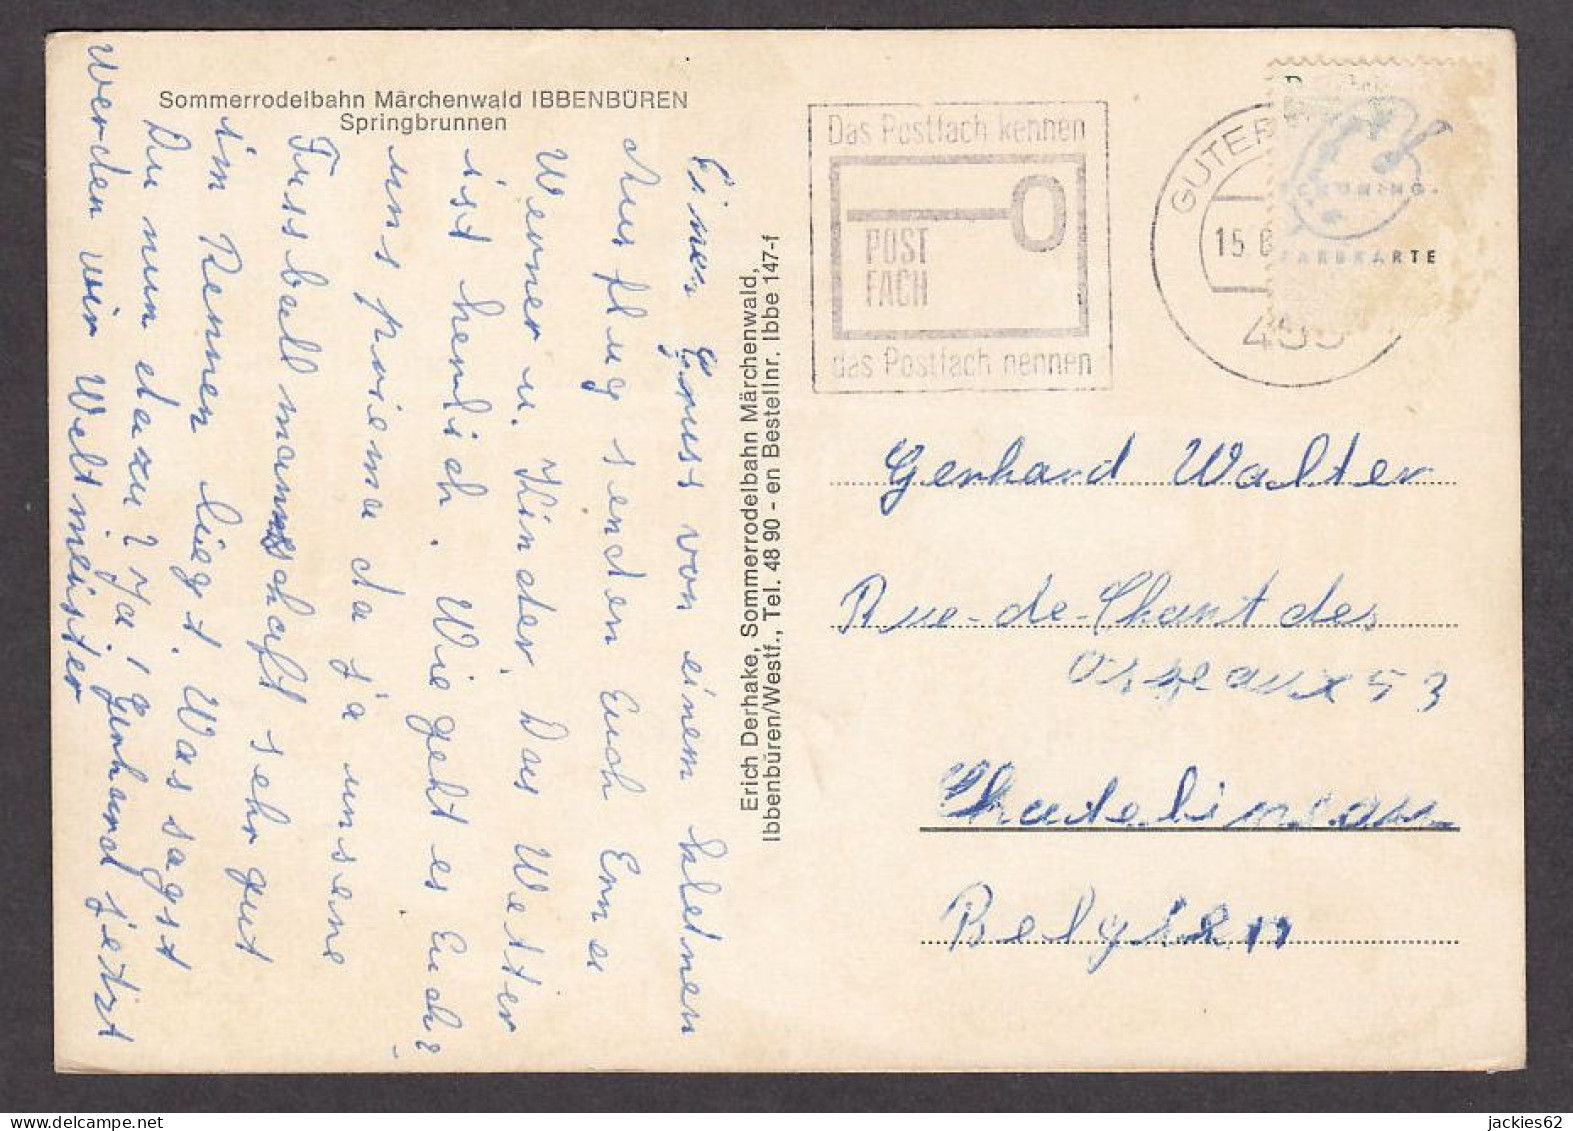 Sommerrodelbahn Märchenwald IBBENBÜREN
Springbrunnen
Einen Gruss von einem kleinen
Ausflug senden Euch Erna
Werner u. Kinder. Das Wetter
ist herrlich. Wie geht es Euch?
uns prima da ja unsere
Fussballmannschaft sehr gut
im Rennen liegt. Was sagst
Du nun dazu? Ja, Gerhard jetzt
werden wir Weltmeister
Erich Derhake, Sommerrodelbahn Märchenwald,
Ibbenbüren/Westf., Tel. 48 90 - en Bestellnr. Ibbe 147-f
Das Postfach kennen
POST
FACH
das Postfach nennen
GUTER
15.6
SCHÖNING-
FARBKARTE
Gerhard Walter
Rue-de-Chant des
Oiseaux 53
Chatelineau
Belgien
jackies62